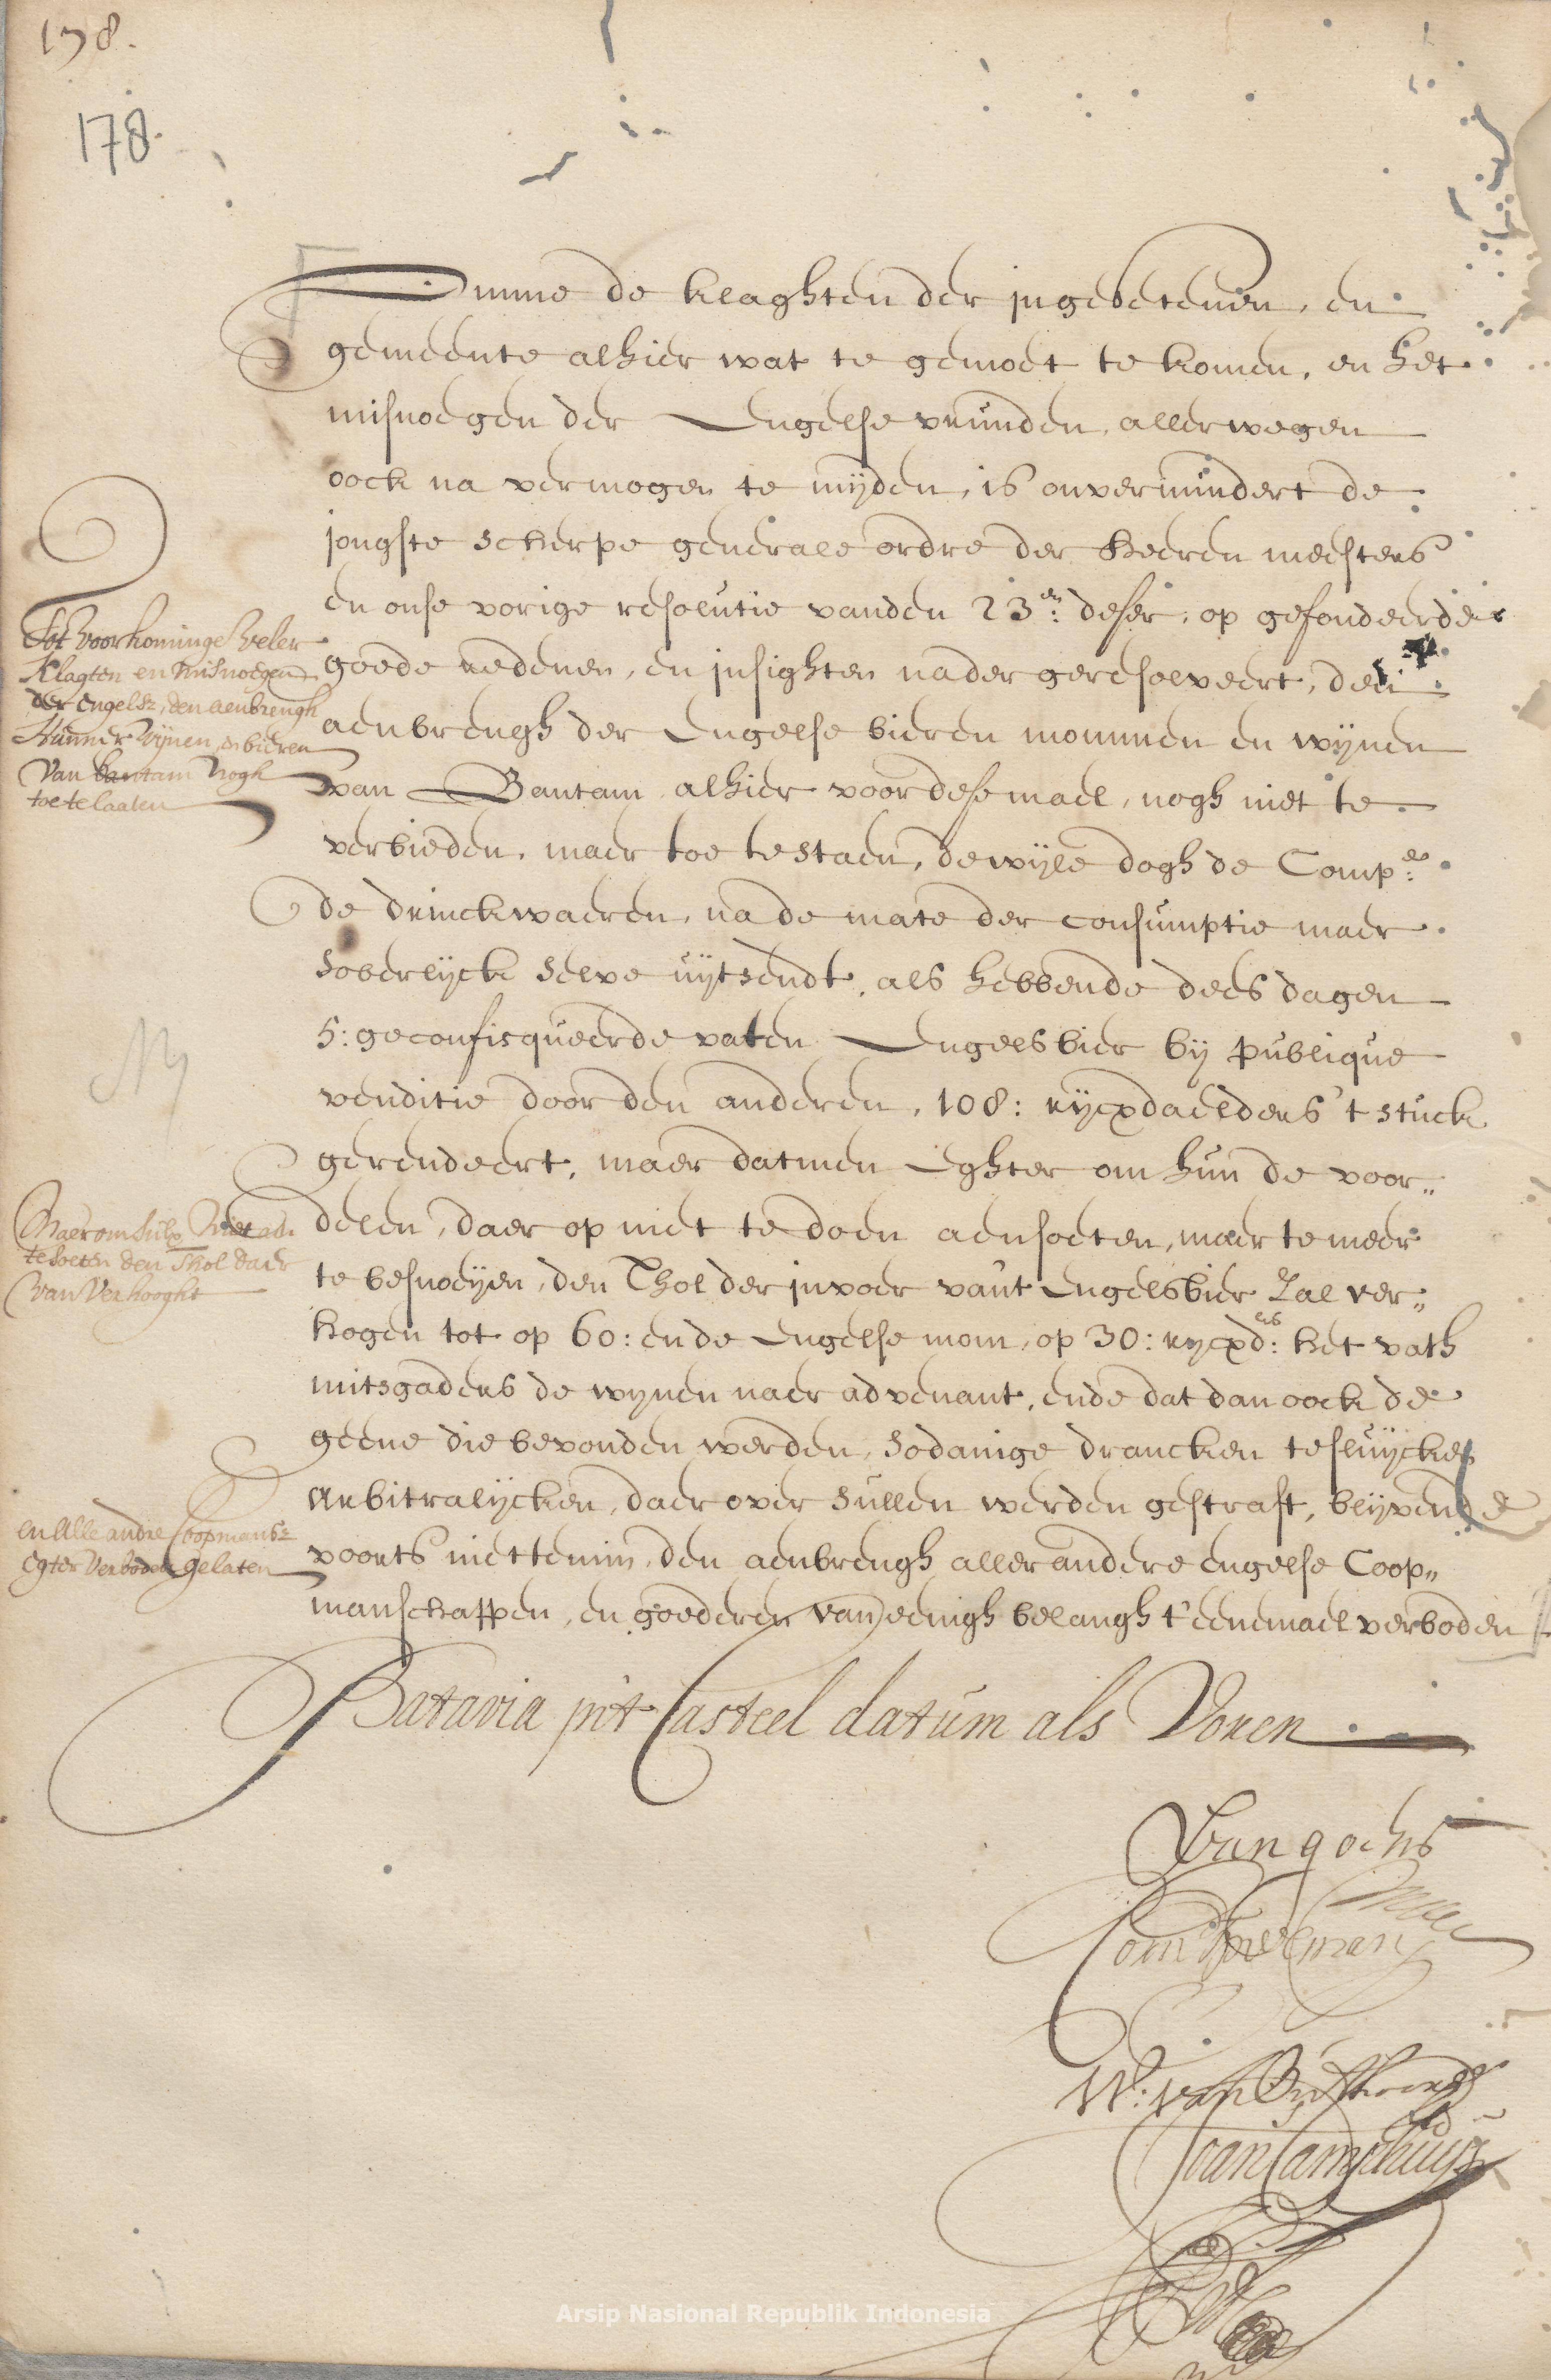 178.
178.
Omme de klaghten der jngesetenen, en
gemeente alhier wat te gemoet te komen, en het
misnoegen der Engelse vrunden, allerwegen
oock na vermogen te mijden, is onvermindert de
jongste scherpe generale ordre der heeren meesters
en onse vorige resolutie vanden 23en: deser, op gefondeerde
goede redenen, en jnsighten nader geresolveert, den
aenbrengh der Engelse bieren mommen en wijnen
van Bantam alhier voor dese mael, nogh niet te
verbieden, maer toe te staen, dewijle dogh de Compe:
de drinckwaeren, na de mate der consumptie maer
soberlijck selve uijtsendt, als hebbende dees dagen
5: geconfisqueerde vaten Engels bier bij publique
venditie door den anderen, 108: rijcxdaelders 't stuck
gerendeert, maer datmen Eghter om hun de voor„
delen, daer op niet te doen aensoeten, maer te meer
te besnoeijen, den Thol der jnvoer van't Engels bier Zal ver„
hogen tot op 60: en de Engelse mom, op 30: rijcxdes: het vath
mitsgaders de wijnen naer advenant, ende dat dan oock de
geene die bevonden werden, sodanige drancken te sluijcken
Arbitralijcken, daer over sullen werden gestraft, blijvende
voorts niettemin, den aenbrengh aller andere engelse Coop„
manschappen, en goederen van eenigh belangh t'eenemael verboden
Tot voorkominge veler
Klagten en misnoegen
der Engelse, den aenbrengh
Hunner Wijnen, en bieren
Van bantam nogh
toe te laaten
Maer om hulp niet aen
te soeten den Thol daer
van Verhooght
en Alle andre Coopmansz
egter Verboden gelaten
Batavia jn't Casteel datum als Voren
Van goens
Corn Speelman
W: van Outhoorn
Joan Camphuijs
Arsip Nasional Republik Indonesia